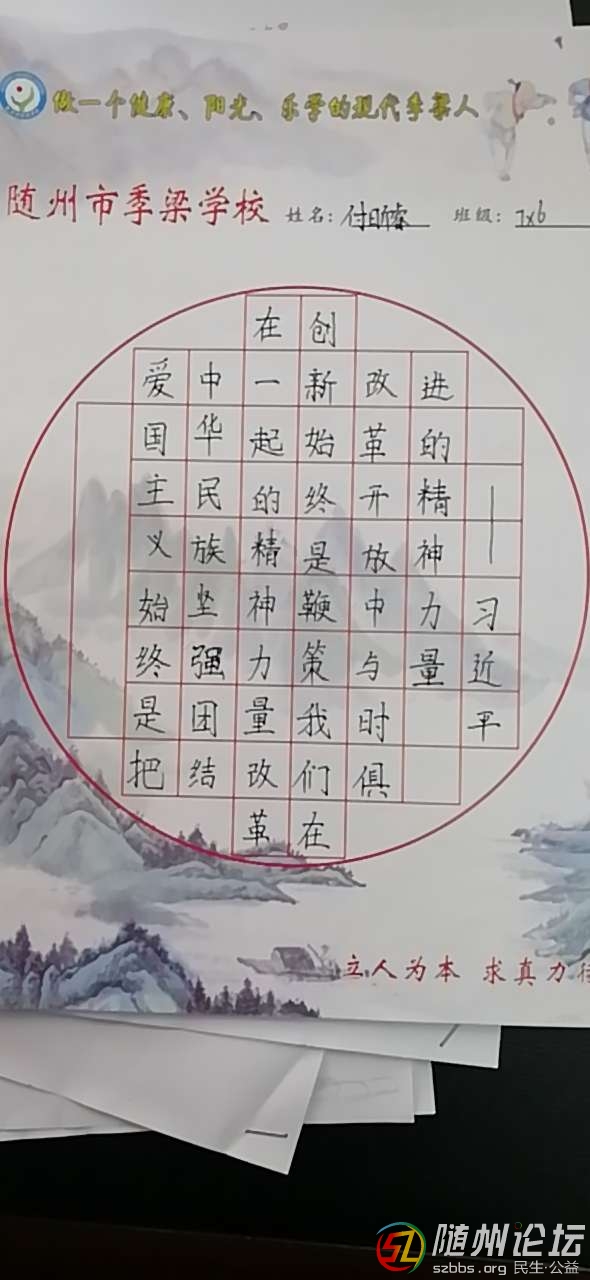 做一个健康、阳光、乐学的现代季梁人
随州市季梁学校 姓名: 班级:
爱国主义始终是把
中华民族坚强团结
在一起的精神力量改革
创新始终是鞭策我们在
改革开放中与时俱
进的精神力量
——习近平
立人为本 求真力
随州论坛
szbbs.org 民生·公益